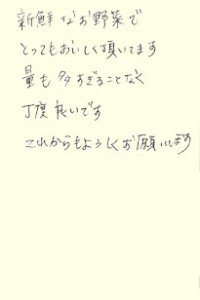 新鮮なお野菜で
とってもおいしく頂いてます
量も多すぎることなく
丁度良いです
これからもよろしくお願いします